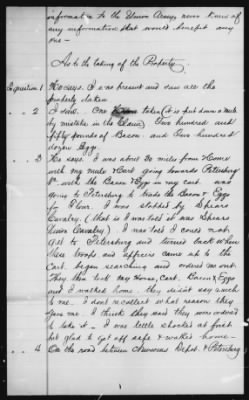 information to the Union Army, never knew of
any information that would benefit any
one -
As to the taking of the Property.
Question 1 He says. I was present and saw all the
property taken
" 2 I saw. One taken (it is put down a mule
by mistake in the Claim) Two hundred and
fifty pounds of Bacon and Two hundred
dozen Eggs.
" 3 He says. I was about 20 miles from Home
with my mule Cart going towards Petersburg
with the Bacon & Eggs in my cart. was
going to Petersburg to trade the Bacon & Eggs
for Flour. I was stopped by Spears
Cavalry. (that is I was told it was Spears
Union Cavalry). I was told I could not
get to Petersburg and turned back when
these troops and officers came up to the
Cart. began searching and ordered me out.
They then took my Horse, Cart, Bacon & Eggs
and I walked home. they didn't say much
to me. I don't recollect what reason they
gave me. I think they said they were ordered
to take it. I was little shocked at first
but glad to get off safe & walked home -
" 4 On the road between Depot & Petersburg